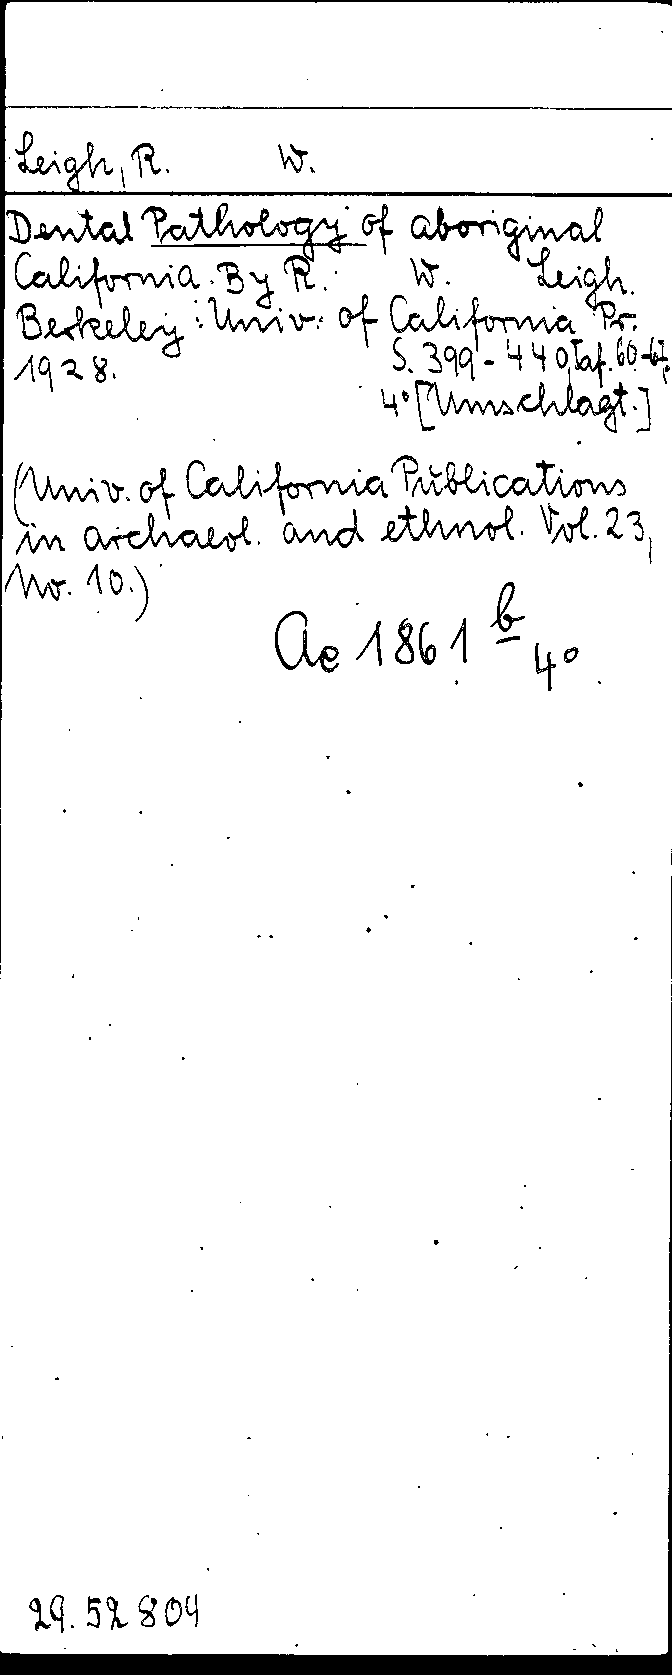 Leigh, R. W.
Dental Pathology of aboriginal
California. By R. W. Leigh.
Berkeley: Univ. of California Pr.
1928. S. 399-440, Taf. 60-67.
4° [Umschlagt.]
(Univ. of California Publications
in archaeol. and ethnol. Vol. 23,
No. 10.)
Ac 1861 b 4°
29.52804